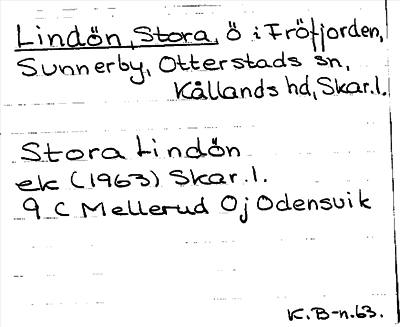 Lindön, Stora, Ö i Fröfjorden,
Sunnerby, Otterstads sn,
Kållands hd, Skar.l.
Stora Lindön
ek (1963) Skar.l.
9 C Mellerud Oj Odensvik
K.B-n.63.